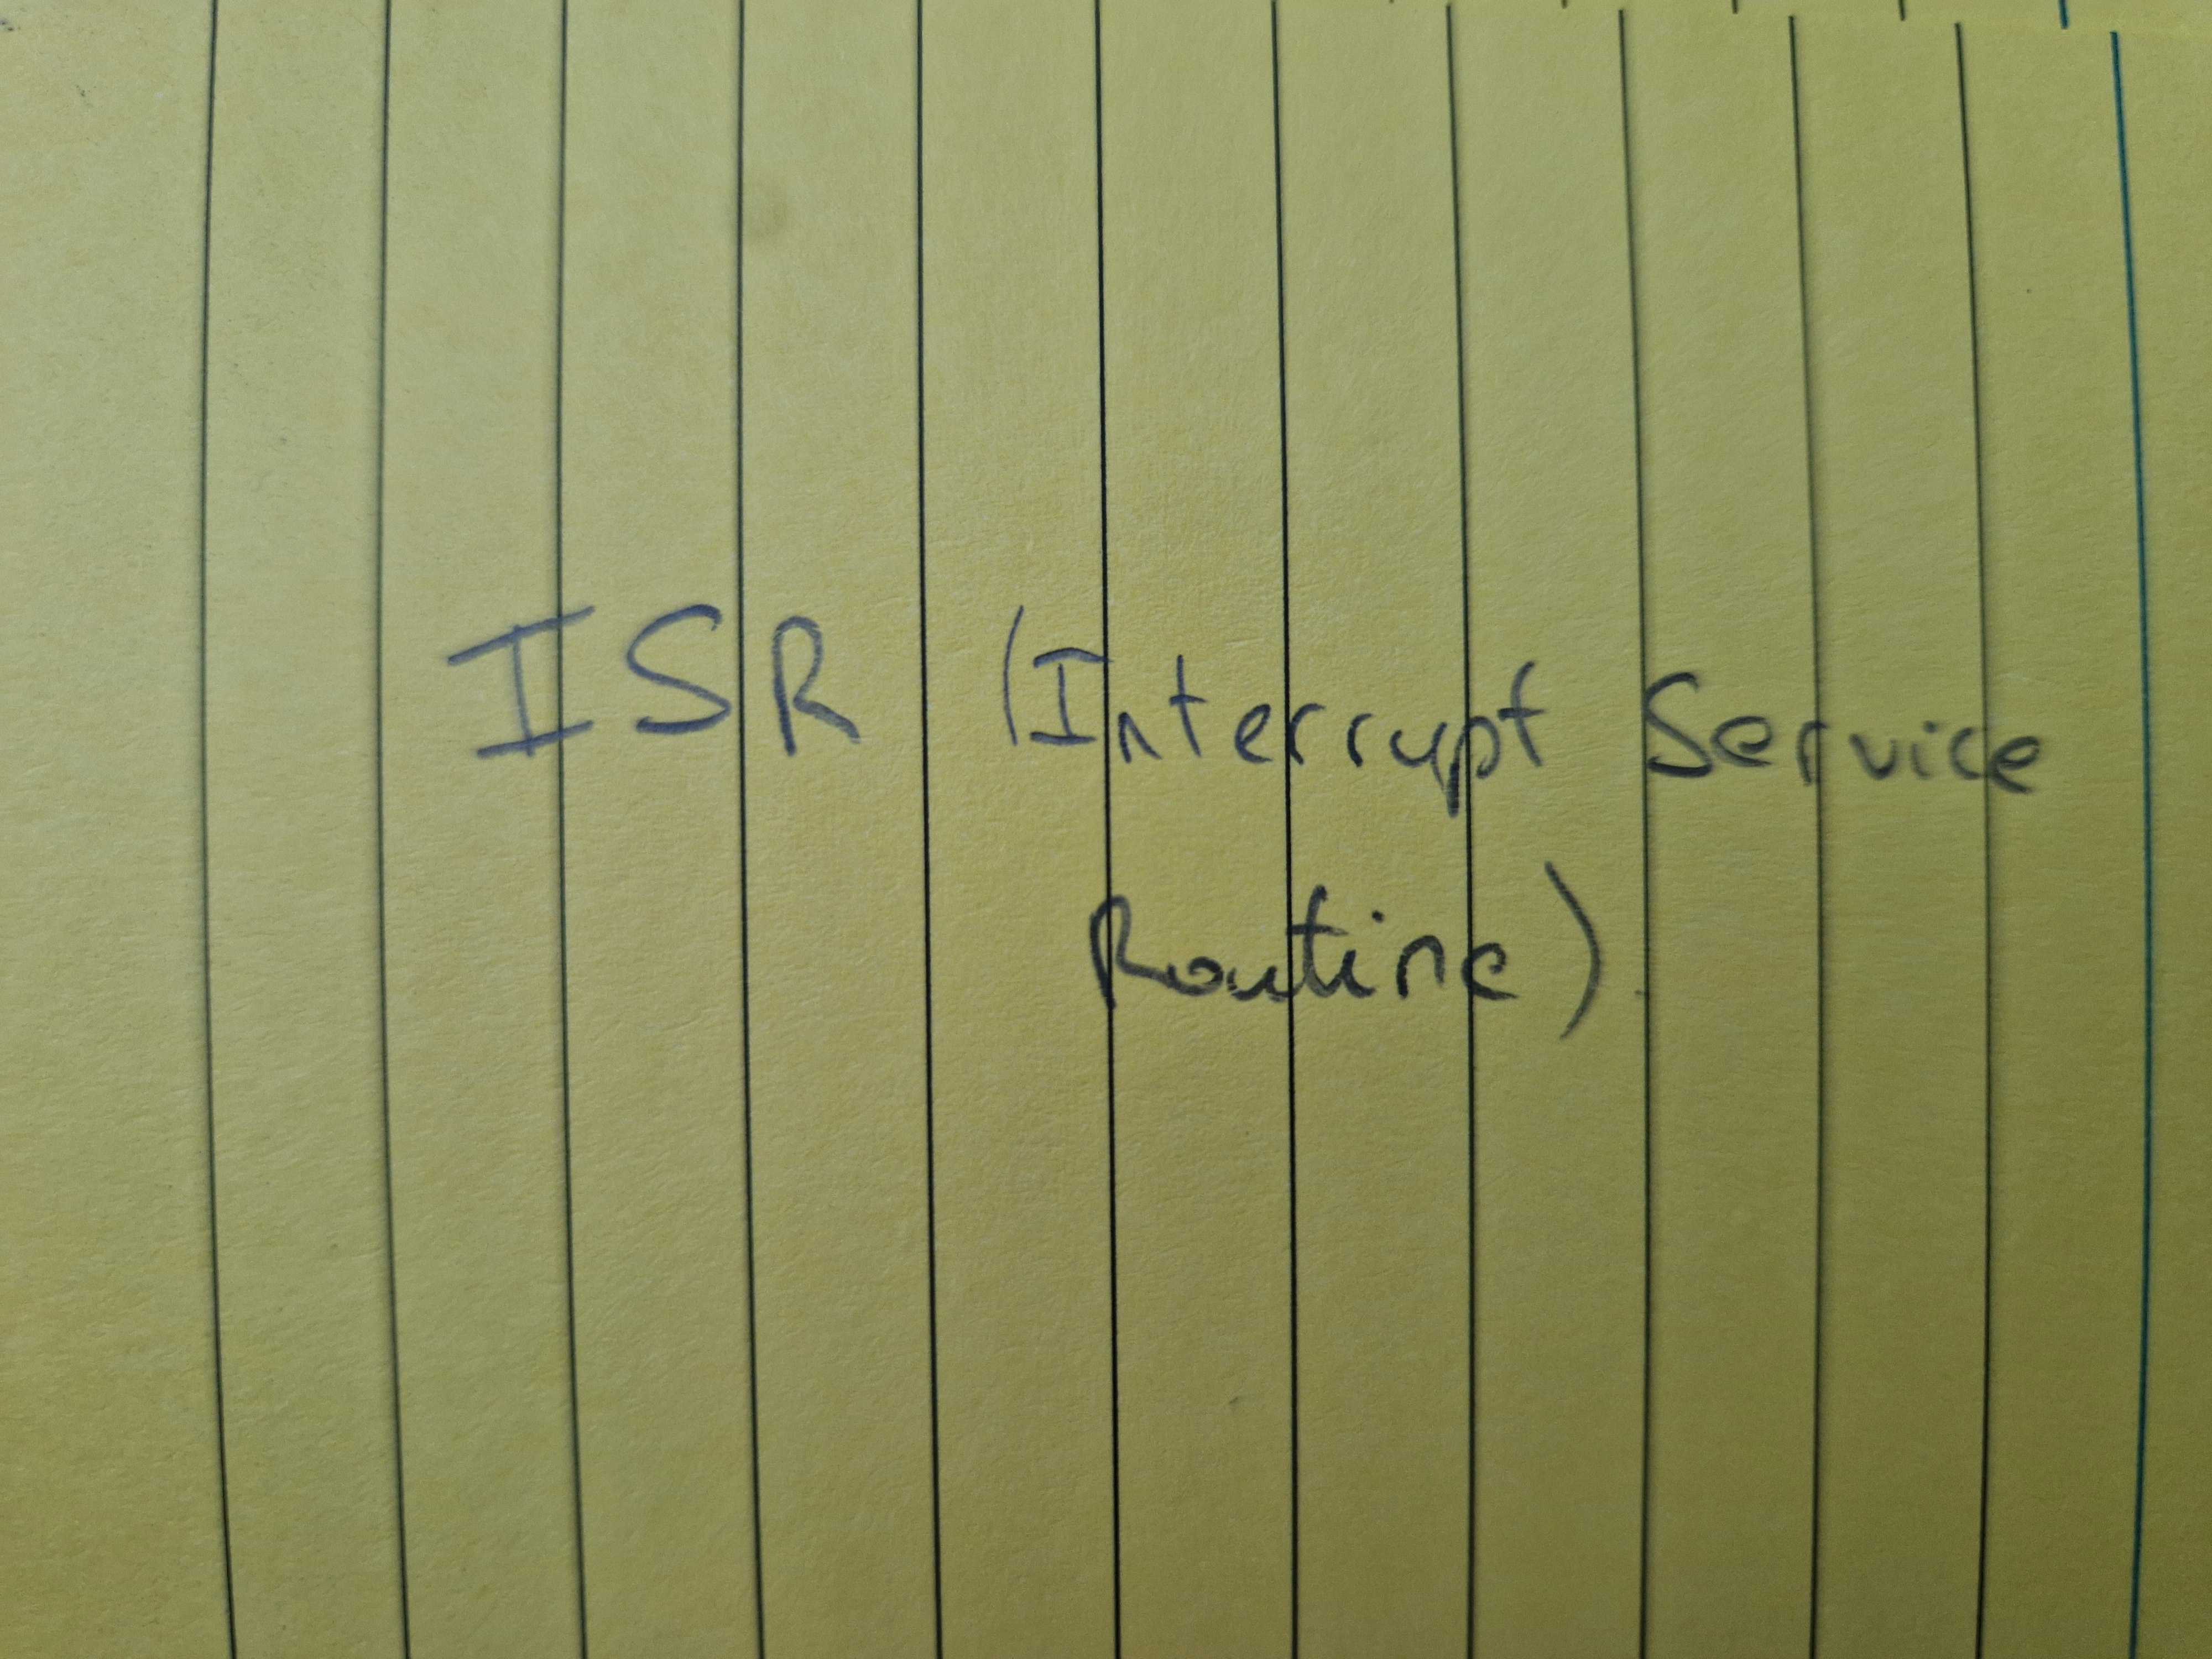 ISR (Interrupt Service
Routine)